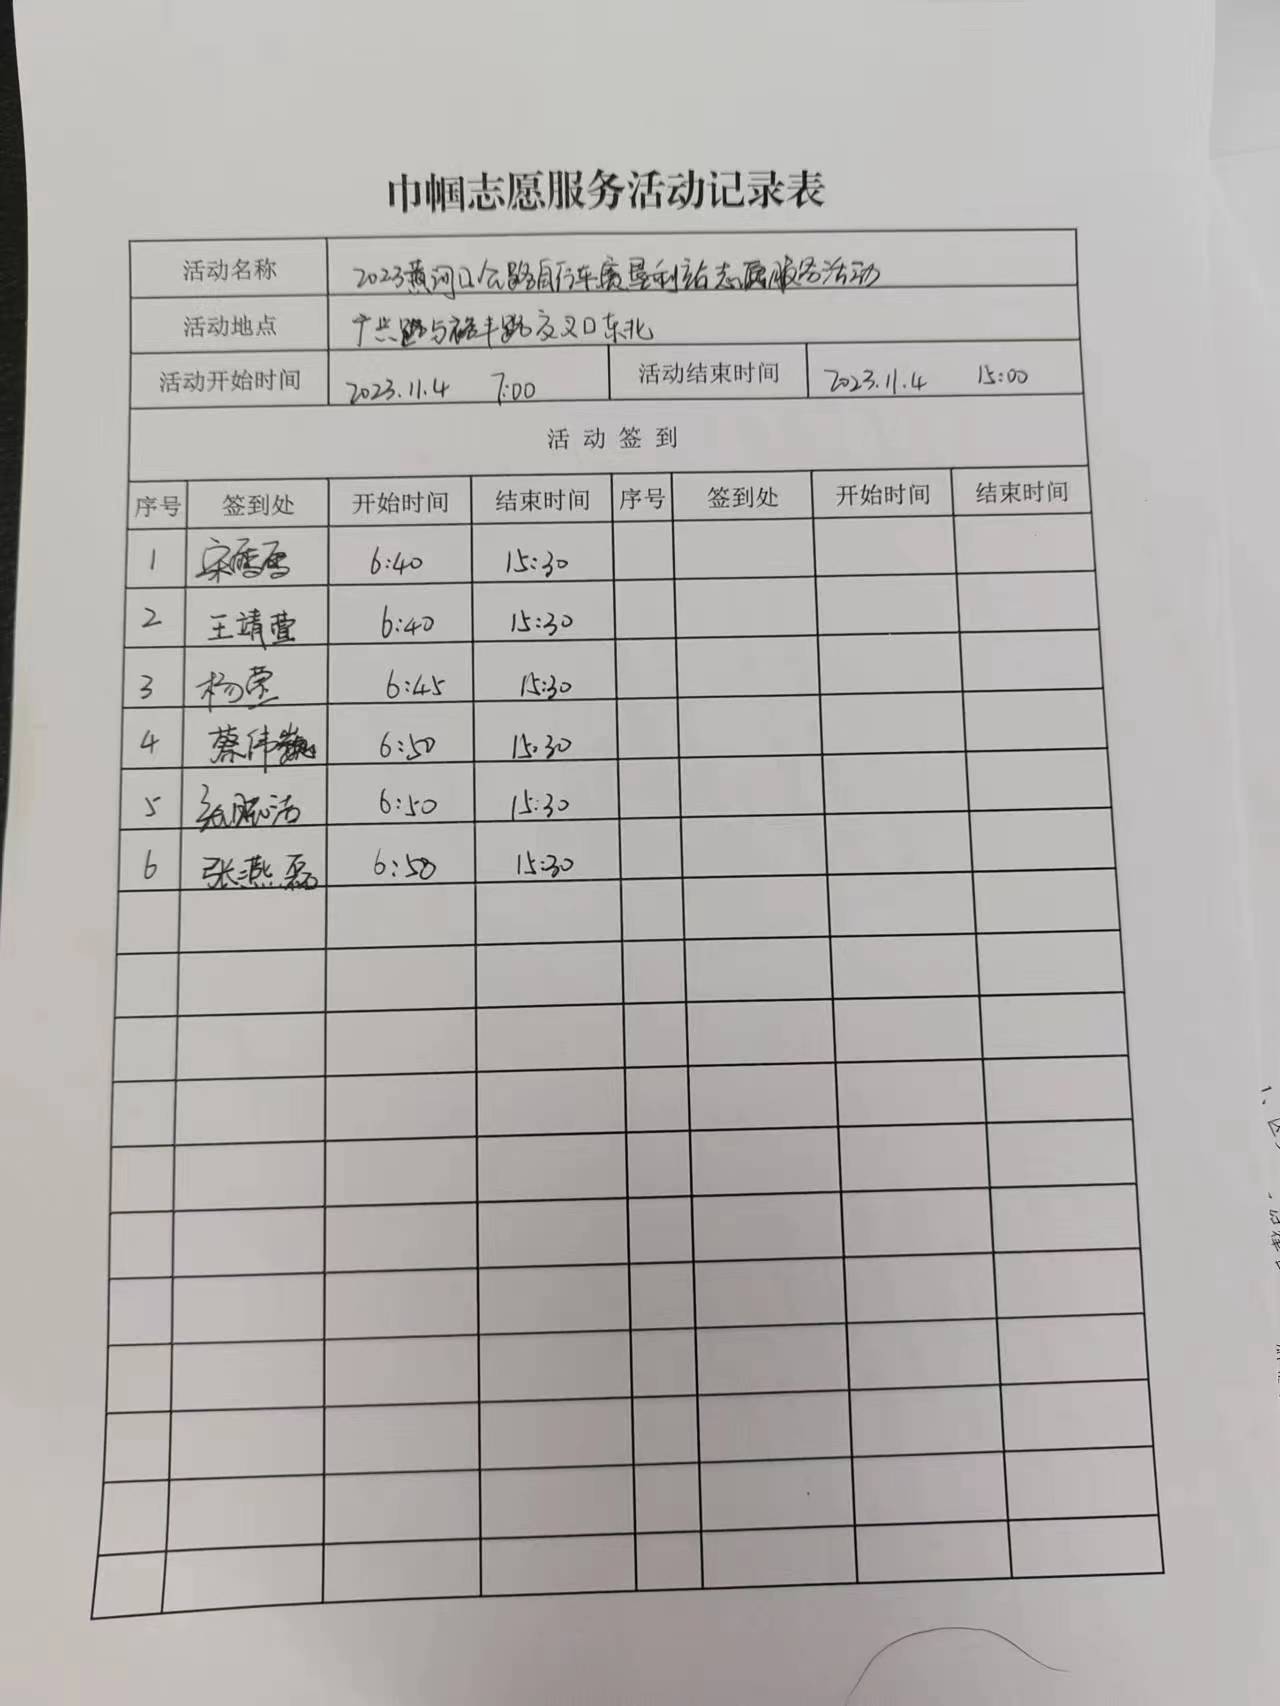 巾帼志愿服务活动记录表
活动名称 2023黄河口公路自行车赛垦利站志愿服务活动
活动地点 路与 丰路交叉口东北
活动开始时间 2023.11.4 7:00 活动结束时间 2023.11.4 15:00
活动签到
序号 签到处 开始时间 结束时间 序号 签到处 开始时间 结束时间
1 宋 6:40 15:30
2 王靖萱 6:40 15:30
3 杨莹 6:45 15:30
4 蔡伟巍 6:50 15:30
5 洁 6:50 15:30
6 张燕磊 6:50 15:30